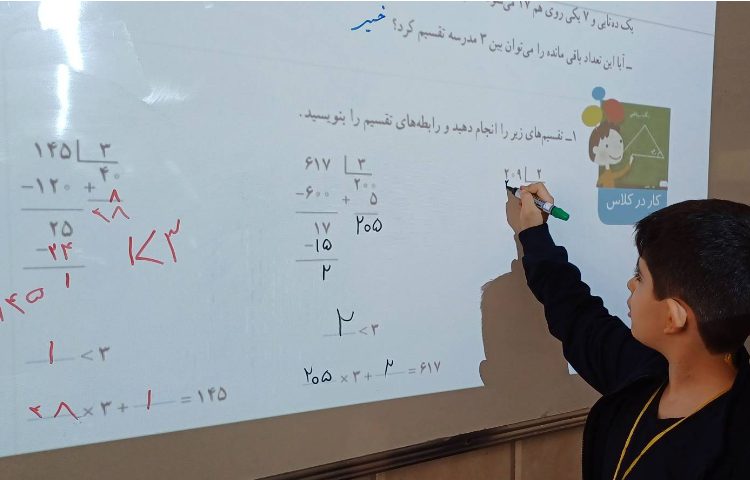 یک ده‌تایی و ۷ یکی روی هم ۱۷
ـ آیا این تعداد باقی مانده را می‌توان بین ۳ مدرسه تقسیم کرد؟ خیر
۱ـ تقسیم‌های زیر را انجام دهید و رابطه‌های تقسیم را بنویسید.
کار در کلاس
۲۰۹ ۲
۲
۶۱۷ ۳
۲۰۰
−۶۰۰ + ۵
۱۷ ۲۰۵
−۱۵
۲
۲ < ۳
۲۰۵ × ۳ + ۲ = ۶۱۷
۱۴۵ ۳
۴۰
−۱۲۰ + ۸
۴۸
۲۵
−۲۴
۱
۱<۳
۱۴۵
۱ < ۳
۴۸ × ۳ + ۱ = ۱۴۵